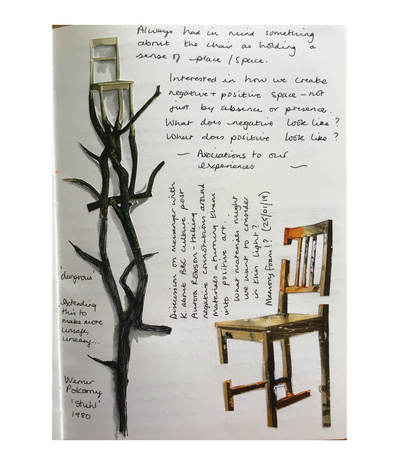 Always had in mind something
about the chair as holding a
sense of place / space.
Interested in how we create
negative + positive space - not
just by absence or presence.
What does negative look like?
What does positive look like?
~ Associations to our
experiences ~
Discussion on messenger with
K. about BBC Culture post
Aurora Robson - taking
negative connotations around
materials + turning them
into positive art.
What materials might
we want to consider
in this light?
Memory foam!? (25/01/19)
'dangerous'
extending
this to
makes more
unsafe,
uneasy...
Werner
Pokorny
'Stuhl'
1980